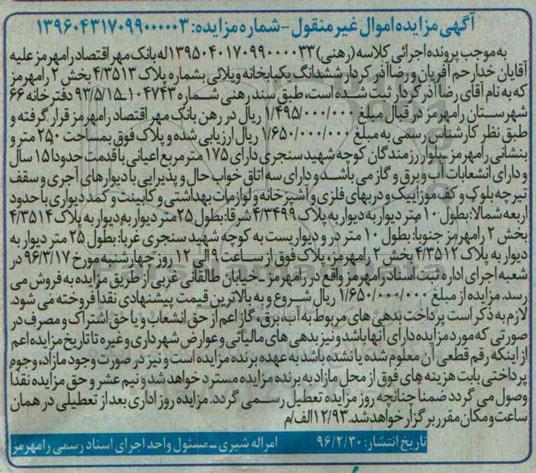 آگهی مزایده اموال غیر منقول - شماره مزایده: ۱۳۹۶۰۴۳۱۷۰۹۹۰۰۰۰۰۳
به موجب پرونده اجرائی کلاسه (رهنی) ۱۳۹۵۰۴۰۱۷۰۹۹۰۰۰۰۳۳ له بانک مهر اقتصاد رامهرمز علیه
آقایان خدارحم آفریان و رضا آذر کردار ششدانگ یکبابخانه ویلائی بشماره پلاک ۴/۳۵۱۳ بخش ۲ رامهرمز
که به نام آقای رضا آذر کردار ثبت شده است، طبق سند رهنی شماره ۱۰۴۷۴۳-۹۳/۵/۱۵ دفترخانه ۶۶
شهرستان رامهرمز در قبال مبلغ ۱/۴۹۵/۰۰۰/۰۰۰ ریال در رهن بانک مهر اقتصاد رامهرمز قرار گرفته و
طبق نظر کارشناس رسمی به مبلغ ۱/۶۵۰/۰۰۰/۰۰۰ ریال ارزیابی شده و پلاک فوق بمساحت ۲۵۰ متر و
بنشانی رامهرمز بلوار رزمندگان کوچه شهید سنجری دارای ۱۷۵ متر مربع اعیانی با قدمت حدودا ۱۵ سال
و دارای انشعابات آب و برق و گاز می باشد و دارای سه اتاق خواب حال و پذیرایی با دیوارهای آجری و سقف
تیرچه بلوک و کف موزاییک و دربهای فلزی و آشپزخانه و لوازمات بهداشتی و کابینت و کمد دیواری با حدود
اربعه شمالا: بطول ۱۰ متر دیوار به دیوار به پلاک ۴/۳۴۹۹ شرقا: بطول ۲۵ متر دیوار به دیوار به پلاک ۴/۳۵۱۴
بخش ۲ رامهرمز جنوبا: بطول ۱۰ متر در و دیواریست به کوچه شهید سنجری غربا: بطول ۲۵ متر دیوار به
دیوار به پلاک ۴/۳۵۱۲ بخش ۲ رامهرمز، پلاک فوق از ساعت ۹ الی ۱۲ روز چهارشنبه مورخ ۹۶/۳/۱۷ در
شعبه اجرای اداره ثبت اسناد رامهرمز واقع در رامهرمز - خیابان طالقانی غربی از طریق مزایده به فروش می
رسد. مزایده از مبلغ ۱/۶۵۰/۰۰۰/۰۰۰ ریال شروع و به بالاترین قیمت پیشنهادی نقدا فروخته می شود.
لازم به ذکر است پرداخت بدهی های مربوط به آب، برق، گاز اعم از حق انشعاب و یا حق اشتراک و مصرف در
صورتی که مورد مزایده دارای آنها باشد و نیز بدهی های مالیاتی و عوارض شهرداری و غیره تا تاریخ مزایده اعم
از اینکه رقم قطعی آن معلوم شده یا نشده باشد به عهده برنده مزایده است و نیز در صورت وجود مازاد، وجوه
پرداختی بابت هزینه های فوق از محل مازاد به برنده مزایده مسترد خواهد شد و نیم عشر و حق مزایده نقدا
وصول می گردد ضمنا چنانچه روز مزایده تعطیل رسمی گردد. مزایده روز اداری بعد از تعطیلی در همان
ساعت و مکان مقرر برگزار خواهد شد. ۱۲/۹۳ الف/م
تاریخ انتشار: ۹۶/۲/۳۰
امراله شیری - مسئول واحد اجرای اسناد رسمی رامهرمز